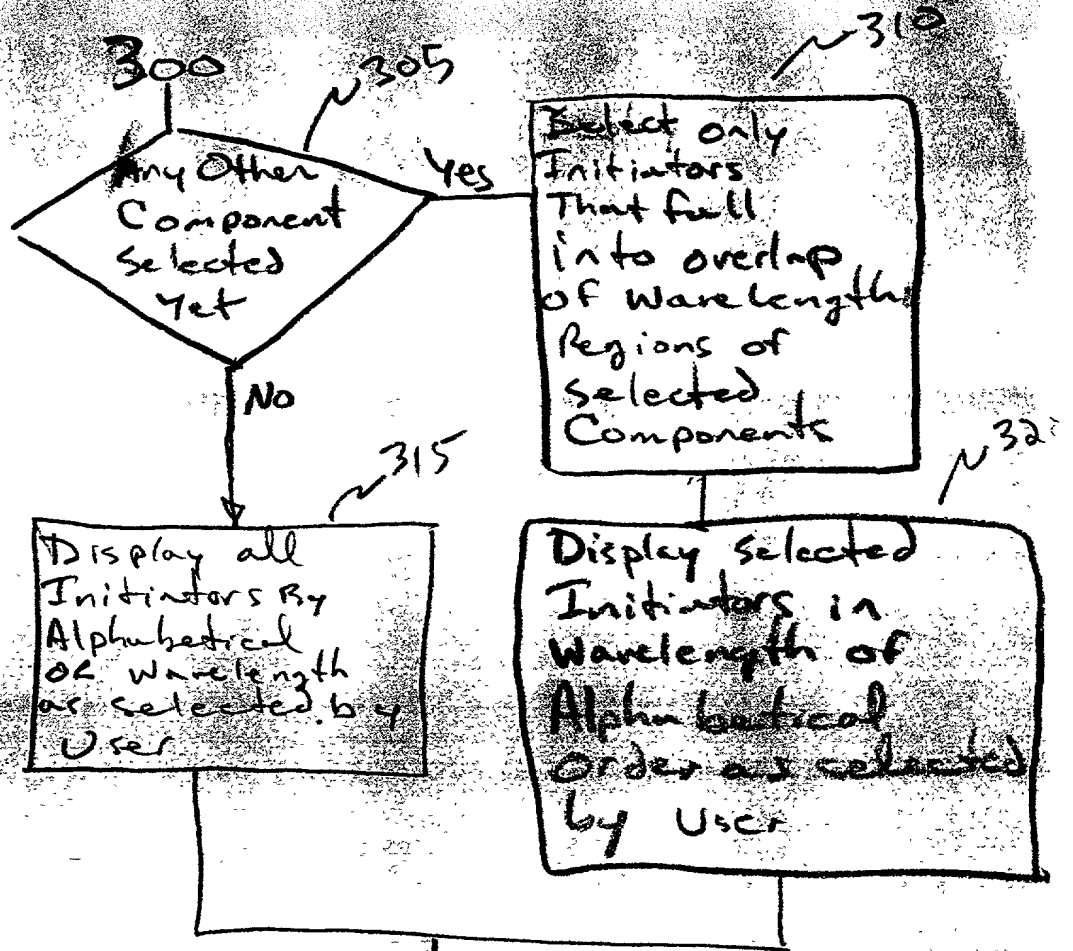 300
305
Any Other
Component
Selected
Yet
Yes
310
Select only
Initiators
That fall
into overlap
of Wavelength
Regions of
Selected
Components
No
315
Display all
Initiators By
Alphabetical
or wavelength
as selected by
User
32
Display selected
Initiators in
Wavelength of
Alphabetical
order as selected
by User